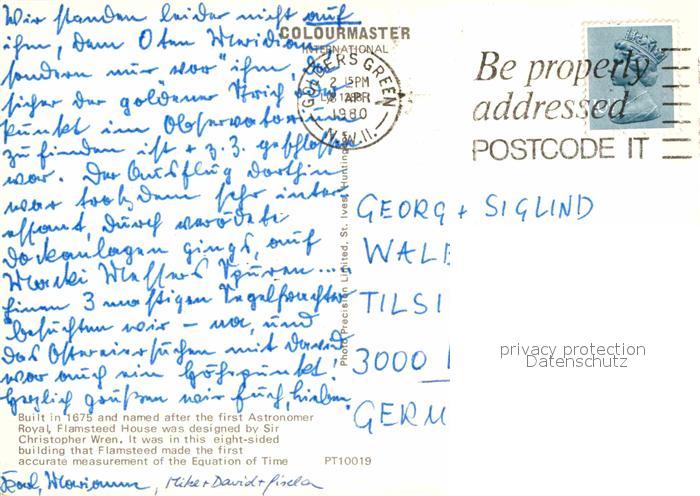 Wir standen leider nicht auf
ihm, dem 0ten Meridian
sondern nur vor ihm, da
sicher der goldener Strich
punkt im Observatorium
zu finden ist + z. Z. geschlossen
war. Der Ausflug dorthin
war trotzdem sehr inter-
essant, durch verödete
Dockanlagen gings, auf
Macki Messers Spuren....
Einen 3 mastigen Segelfrachter
besuchten wir – na, und
das Ostereiersuchen mit David
war auch ein Höhepunkt!
Herzlich grüßen wir Euch, Lieben
Built in 1675 and named after the first Astronomer
Royal, Flamsteed House was designed by Sir
Christopher Wren. It was in this eight-sided
building that Flamsteed made the first
accurate measurement of the Equation of Time
PT10019
Marianne, Mike + David + Gisela
COLOURMASTER
INTERNATIONAL
Photo Precision Limited, St. Ives, Huntingdon
GOLDERS GREEN
2 15PM
8 APR
1980
N.W.11.
Be properly
addressed
POSTCODE IT
GEORG + SIGLIND
WALD
TILSI
3000
GERM
privacy protection
Datenschutz